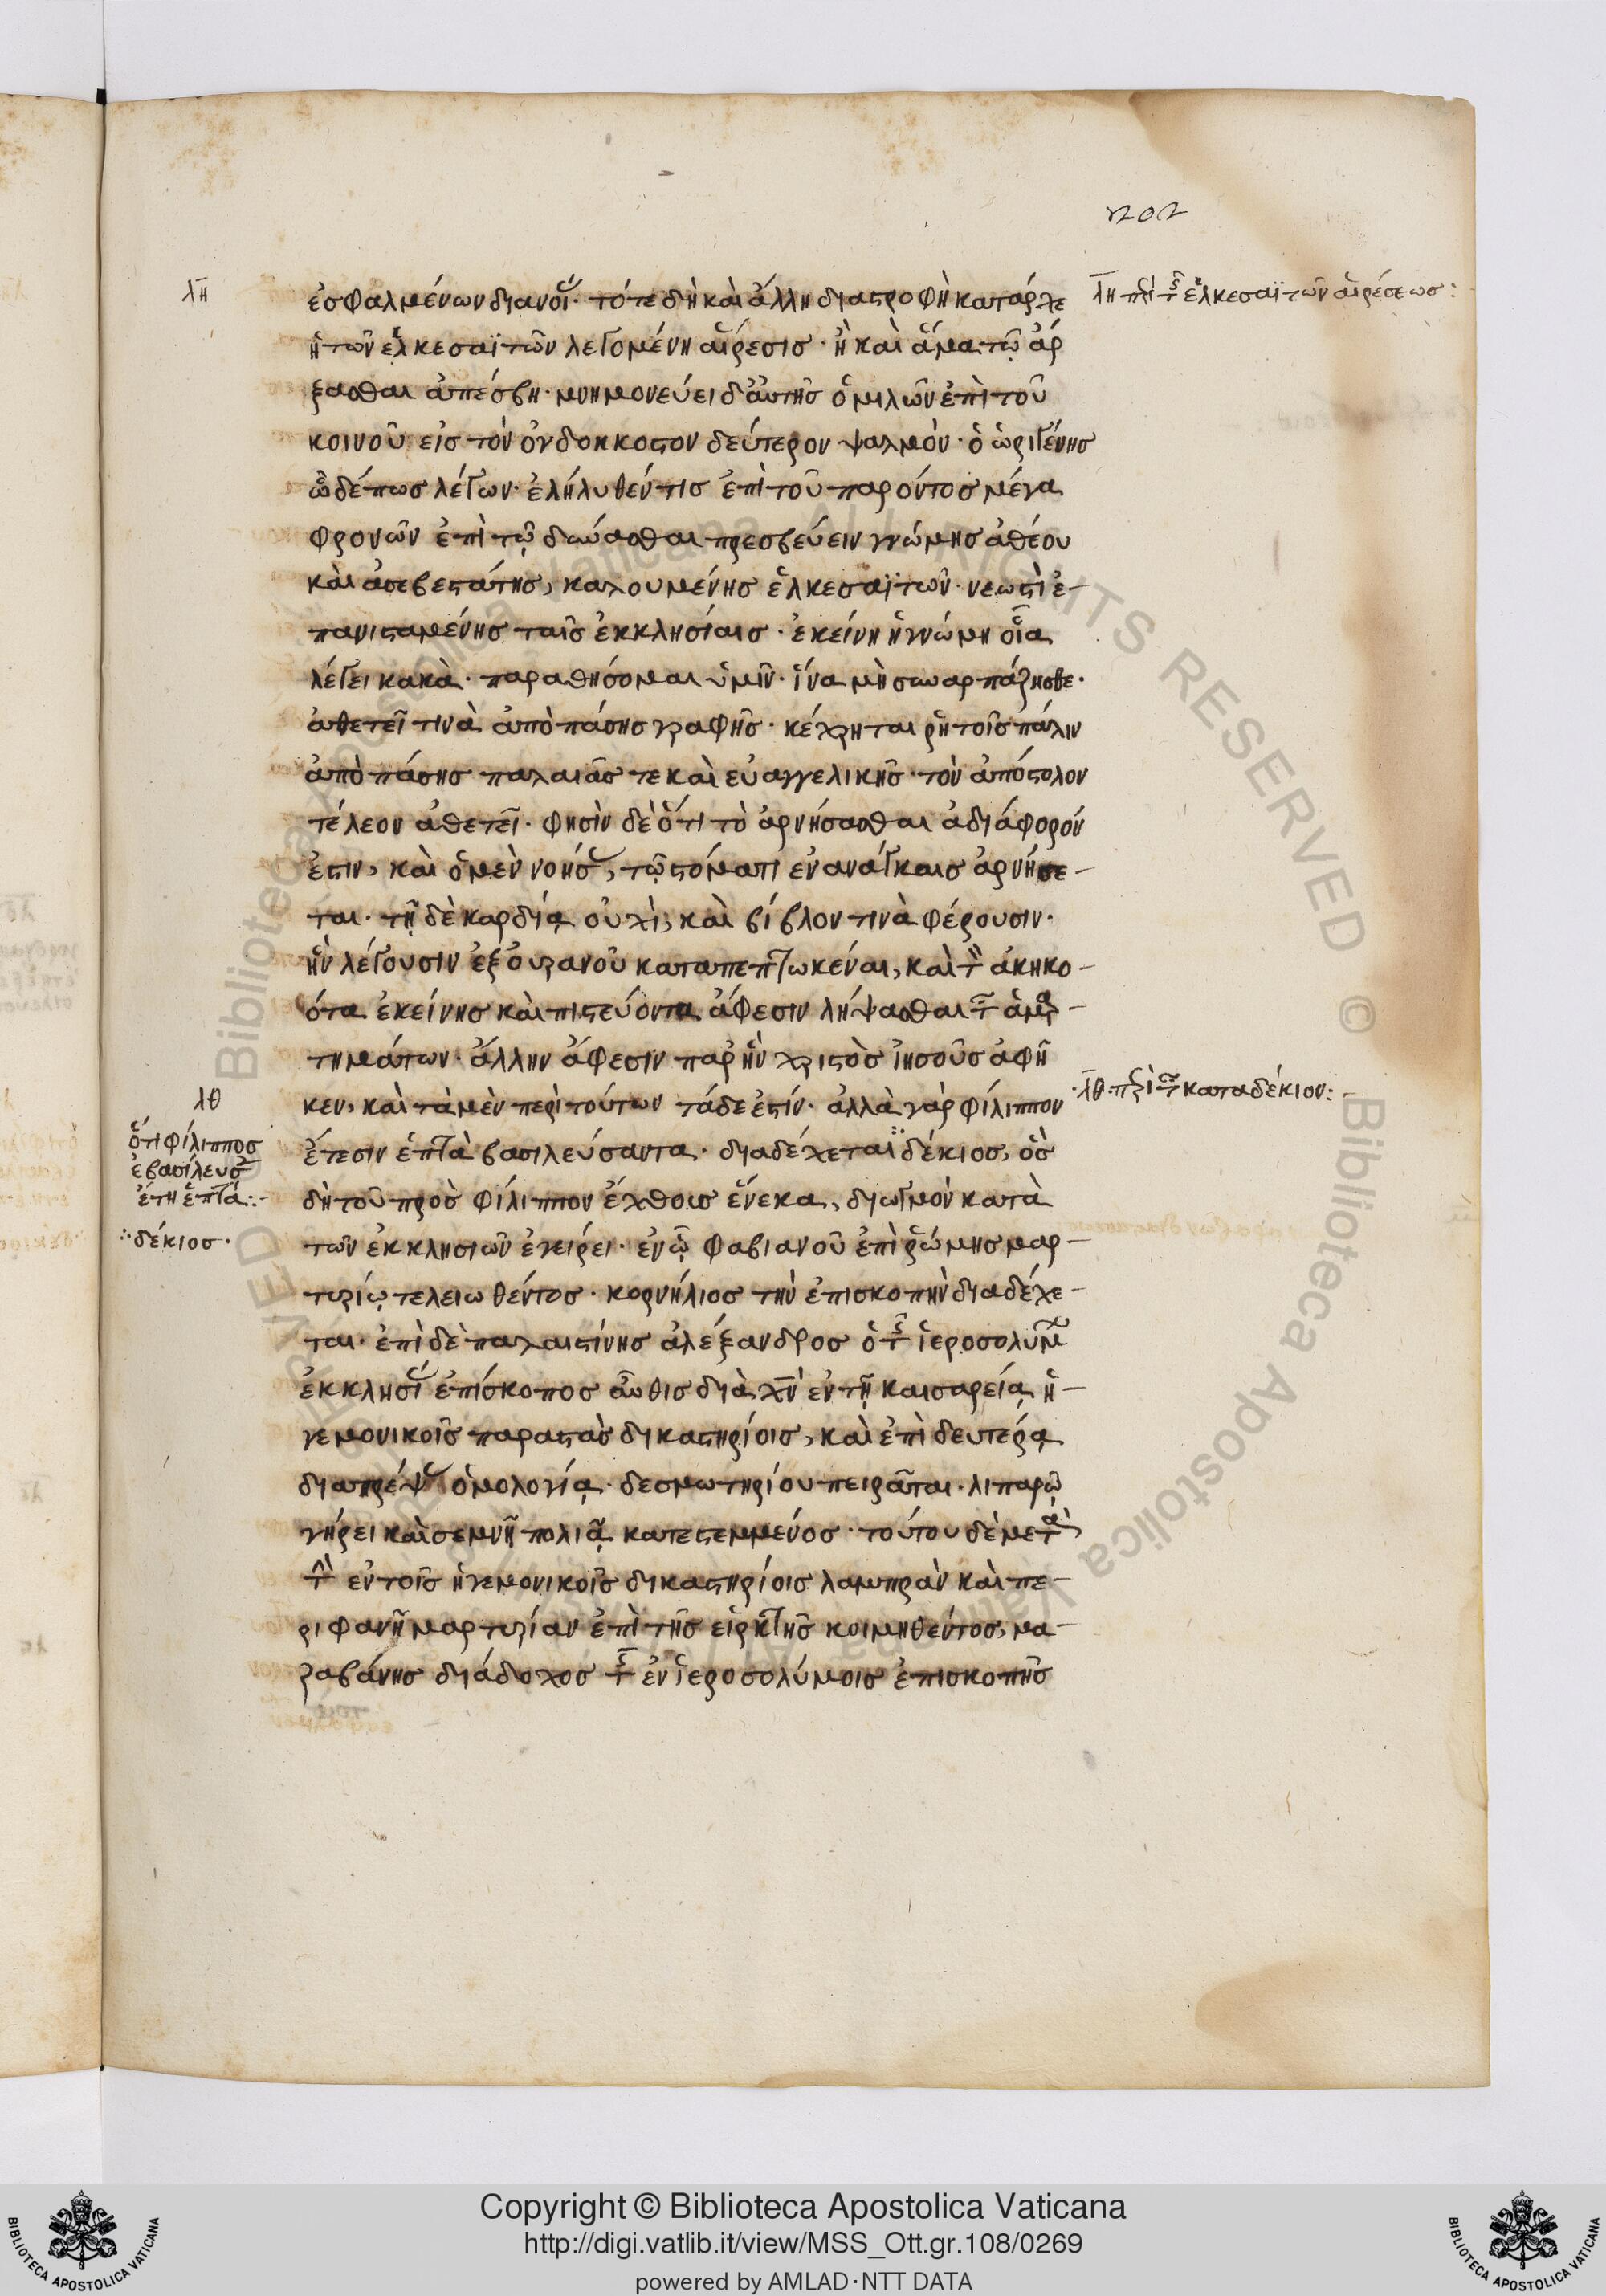 202
λη
λη πε τ ἑλκεσαϊτῶν αἱρέσεωσ:
ἐσφαλμένων διανοί· τότε δὴ καὶ ἄλλη διαστροφὴ κατάρχε
ἡ τῶν ἑλκεσαϊτῶν λεγομένη αἵρεσισ· ἣ καὶ ἅμα τῶ ἄρ
ξασθαι ἀπέσβη· μνημονεύει δ' ἀυτῆσ ὁμιλῶν ἐπὶ τοῦ
κοινοῦ εἰσ τὸν ὀγδοηκοστον δεύτερον ψαλμὸν· ὁ ὠριγένησ
ὧδέ πωσ λέγων· ἐλήλυθέν τισ ἐπὶ τοῦ παρόντοσ μέγα
φρονῶν ἐπὶ τῷ δύνασθαι πρεσβεύειν γνώμησ ἀθέου
καὶ ἀσεβεστάτησ, καλουμένησ ἑλκεσαϊτῶν· νεωστὶ ἐ-
πανισταμένησ ταῖσ ἐκκλησίαισ· ἐκείνη ἡ γνώμη οἷα
λέγει κακὰ· παραθήσομαι ὑμῖν· ἵνα μὴ συναρπάζησθε·
ἀθετεῖ τινὰ ἀπὸ πάσησ γραφῆσ· κέχρηται ῥητοῖσ πάλιν
ἀπὸ πάσησ παλαιᾶσ τε καὶ εὐαγγελικῆσ· τὸν ἀπόστολον
τέλεον ἀθετεῖ· φησὶν δὲ ὅτι τὸ ἀρνήσασθαι ἀδιάφορόν
ἐστιν, καὶ ὁ μὲν νοήσ, τῷ στόματι ἐν ανάγκαισ ἀρνήσε-
ται· τῇ δὲ καρδίᾳ οὐχὶ, καὶ βίβλον τινὰ φέρουσιν·
ἣν λέγουσιν ἐξ ὀυρανοῦ καταπεπτωκέναι, καὶ τ ἀκηκο-
ότα ἐκείνησ καὶ πιστεύοντα ἄφεσιν λήψασθαι τ ἁμαρ-
τημάτων· ἄλλην ἄφεσιν παρ' ἣν χριστὸσ ἰησοῦσ ἀφῆ
κεν, καὶ τὰ μὲν περὶ τούτων τάδε ἐστίν· ἀλλὰ γὰρ φίλιππον
λθ
λθ· περὶ τ κατα δέκιον:
ἔτεσιν ἑπτὰ βασιλεύσαντα· διαδέχεται δέκιοσ, ὃσ
ὅτι φίλιπποσ
ἐβασίλευσ
ἔτη ἑπτά:-
δὴ τοῦ πρὸσ φίλιππον ἔχθουσ ἕνεκα, διωγμὸν κατὰ
τῶν ἐκκλησιῶν ἐγείρει· ἐν ᾧ φαβιανοῦ ἐπὶ ῥώμησ μαρ-
∴δέκιοσ·
τυρίῳ τελειωθέντοσ· κορνήλιοσ τὴν ἐπισκοπὴν διαδέχε-
ται· ἐπὶ δὲ παλαιστίνησ ἀλέξανδροσ ὁ τ ἱεροσολύμ
ἐκκλησί ἐπίσκοποσ αὖθισ διὰ χν ἐν τῇ καισαρείᾳ ἡ-
γεμονικοῖσ παραστὰσ δικαστηρίοισ, καὶ ἐπὶ δευτέρᾳ
διαπρέψ ὁμολογίᾳ· δεσμωτηρίου πειρᾶται· λιπαρῷ
γήρει καὶ σεμνῇ πολιᾷ κατεστεμμένοσ· τούτου δὲ μετὰ
τ ἐν τοῖσ ἡγεμονικοῖσ δικαστηρίοισ λαμπρὰν καὶ πε-
ριφανῆ μαρτυρίαν ἐπὶ τῆσ εἱρκτῆσ κοιμηθέντοσ, μα-
ζαβάνησ διάδοχοσ τ ἐν ἱεροσολύμοισ ἐπισκοπῆσ
Copyright © Biblioteca Apostolica Vaticana
http://digi.vatlib.it/view/MSS_Ott.gr.108/0269
powered by AMLAD·NTT DATA
BIBLIOTECA APOSTOLICA VATICANA
BIBLIOTECA APOSTOLICA VATICANA